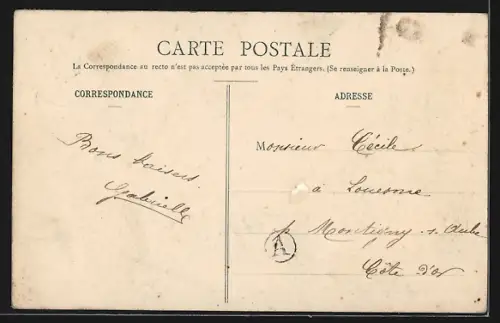 CARTE POSTALE
La Correspondance au recto n'est pas acceptée par tous les Pays Étrangers. (Se renseigner à la Poste.)
CORRESPONDANCE
Bons baisers
Gabrielle
ADRESSE
Monsieur Cécile
à Louesme
p Montigny-s-Aube
Côte d'or
A